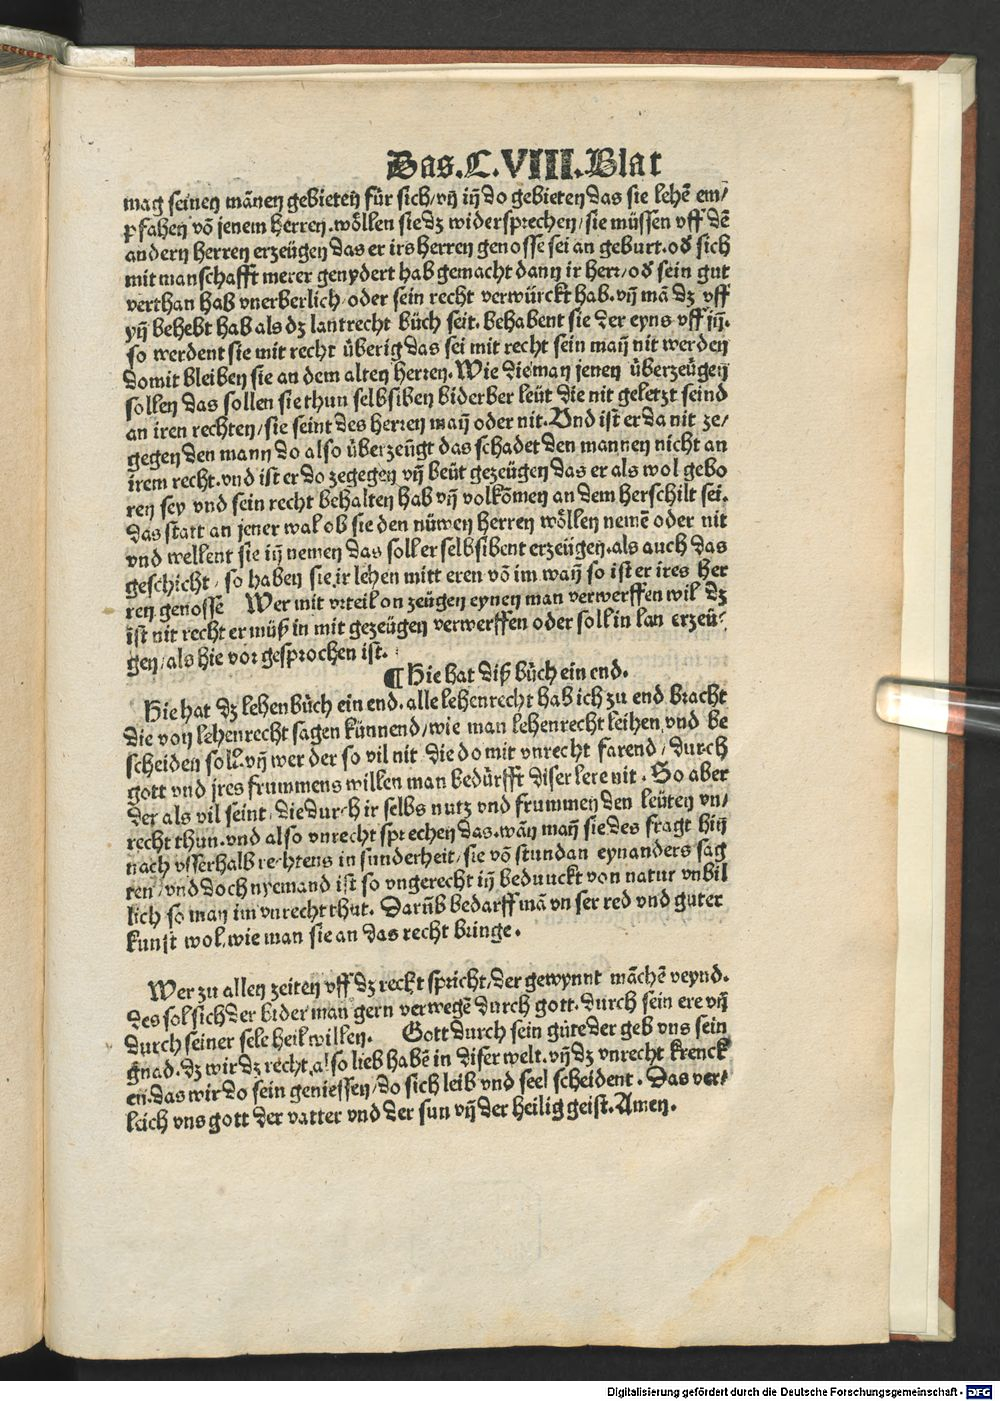 Das.C.VIII.Blat
mag seinen mãnen gebieten für sich/vñ iñ do gebieten das sie lehẽ em/
pfahen võ jenem herren.wöllen sie dz widersprechen/sie müssen vff dẽ
andern herren erzeügen das er irs herren genosse sei an geburt.od sich
mit manschafft merer genydert hab gemacht dann ir herr/od sein gut
verthan hab vnerberlich/oder sein recht verwürckt hab.vñ mã dz vff
yñ behebt hab als dz lantrecht bůch seit.behabent sie der eyns vff jñ.
so werdent sie mit recht überig das sei mit recht sein mañ nit werden
domit bleiben sie an dem alten herren.Wie die man jenen überzeügen
sollen das sollen sie thun selbsiben biderber leüt die nit geletzt seind
an iren rechten/sie seint des herren mañ oder nit.Vnd ist er da nit ze/
gegen den mann do also überzeügt das schadet den mannen nicht an
irem recht.vnd ist er do zegegen vñ beüt gezeügen das er als wol gebo
ren sey vnd sein recht behalten hab vñ volkõmen an dem herschilt sei.
das statt an jener wal ob sie den nüwen herren wöllen nemẽ oder nit
vnd wellent sie iñ nemen das soll er selbsibent erzeügen.als auch das
geschicht/so haben sie ir lehen mitt eren võ im wañ so ist er ires her
ren genosse Wer mit vrteil on zeügen eynen man verwerffen wil dz
ist nit recht er můß in mit gezeügen verwerffen oder soll in lan erzeü/
gen/als hie vor gesprochen ist.
¶ Hie hat diß bůch ein end.
Hie hat dz lehenbůch ein end.alle lehenrecht hab ich zu end bracht
die von lehenrecht sagen künnend/wie man lehenrecht leihen vnd be
scheiden soll.vñ wer der so vil nit die do mit vnrecht farend/durch
gott vnd jres frummens willen man bedürfft diser lere nit.So aber
der als vil seint/die durch ir selbs nutz vnd frummen den leüten vn/
recht thun.vnd also vnrecht sprechen das.wãn mañ sie des fragt hiñ
nach vsserhalb rechtens in sunderheit/sie võ stundan eynanders sag
ren/vnd doch nyemand ist so vngerecht iñ beduuckt von natur vnbil
lich so man im vnrecht thut.Darũb bedarff mã vnser red vnd guter
kunst wol,wie man sie an das recht bringe.
Wer zu allen zeiten vff dz reckt spricht/der gewynnt mãchẽ veynd.
des sol sich der bider man gern verwegẽ durch gott.durch sein ere vñ
durch seiner sele heil willen. Gott durch sein güte der geb vns sein
gnad.dz wir dz recht also lieb habẽ in diser welt.vñ dz vnrecht krenck
en.das wir do sein geniessen/do sich leib vnd seel scheident.Das ver/
leich vns gott der vatter vnd der sun vñ der heilig geist.Amen.
Digitalisierung gefördert durch die Deutsche Forschungsgemeinschaft - DFG